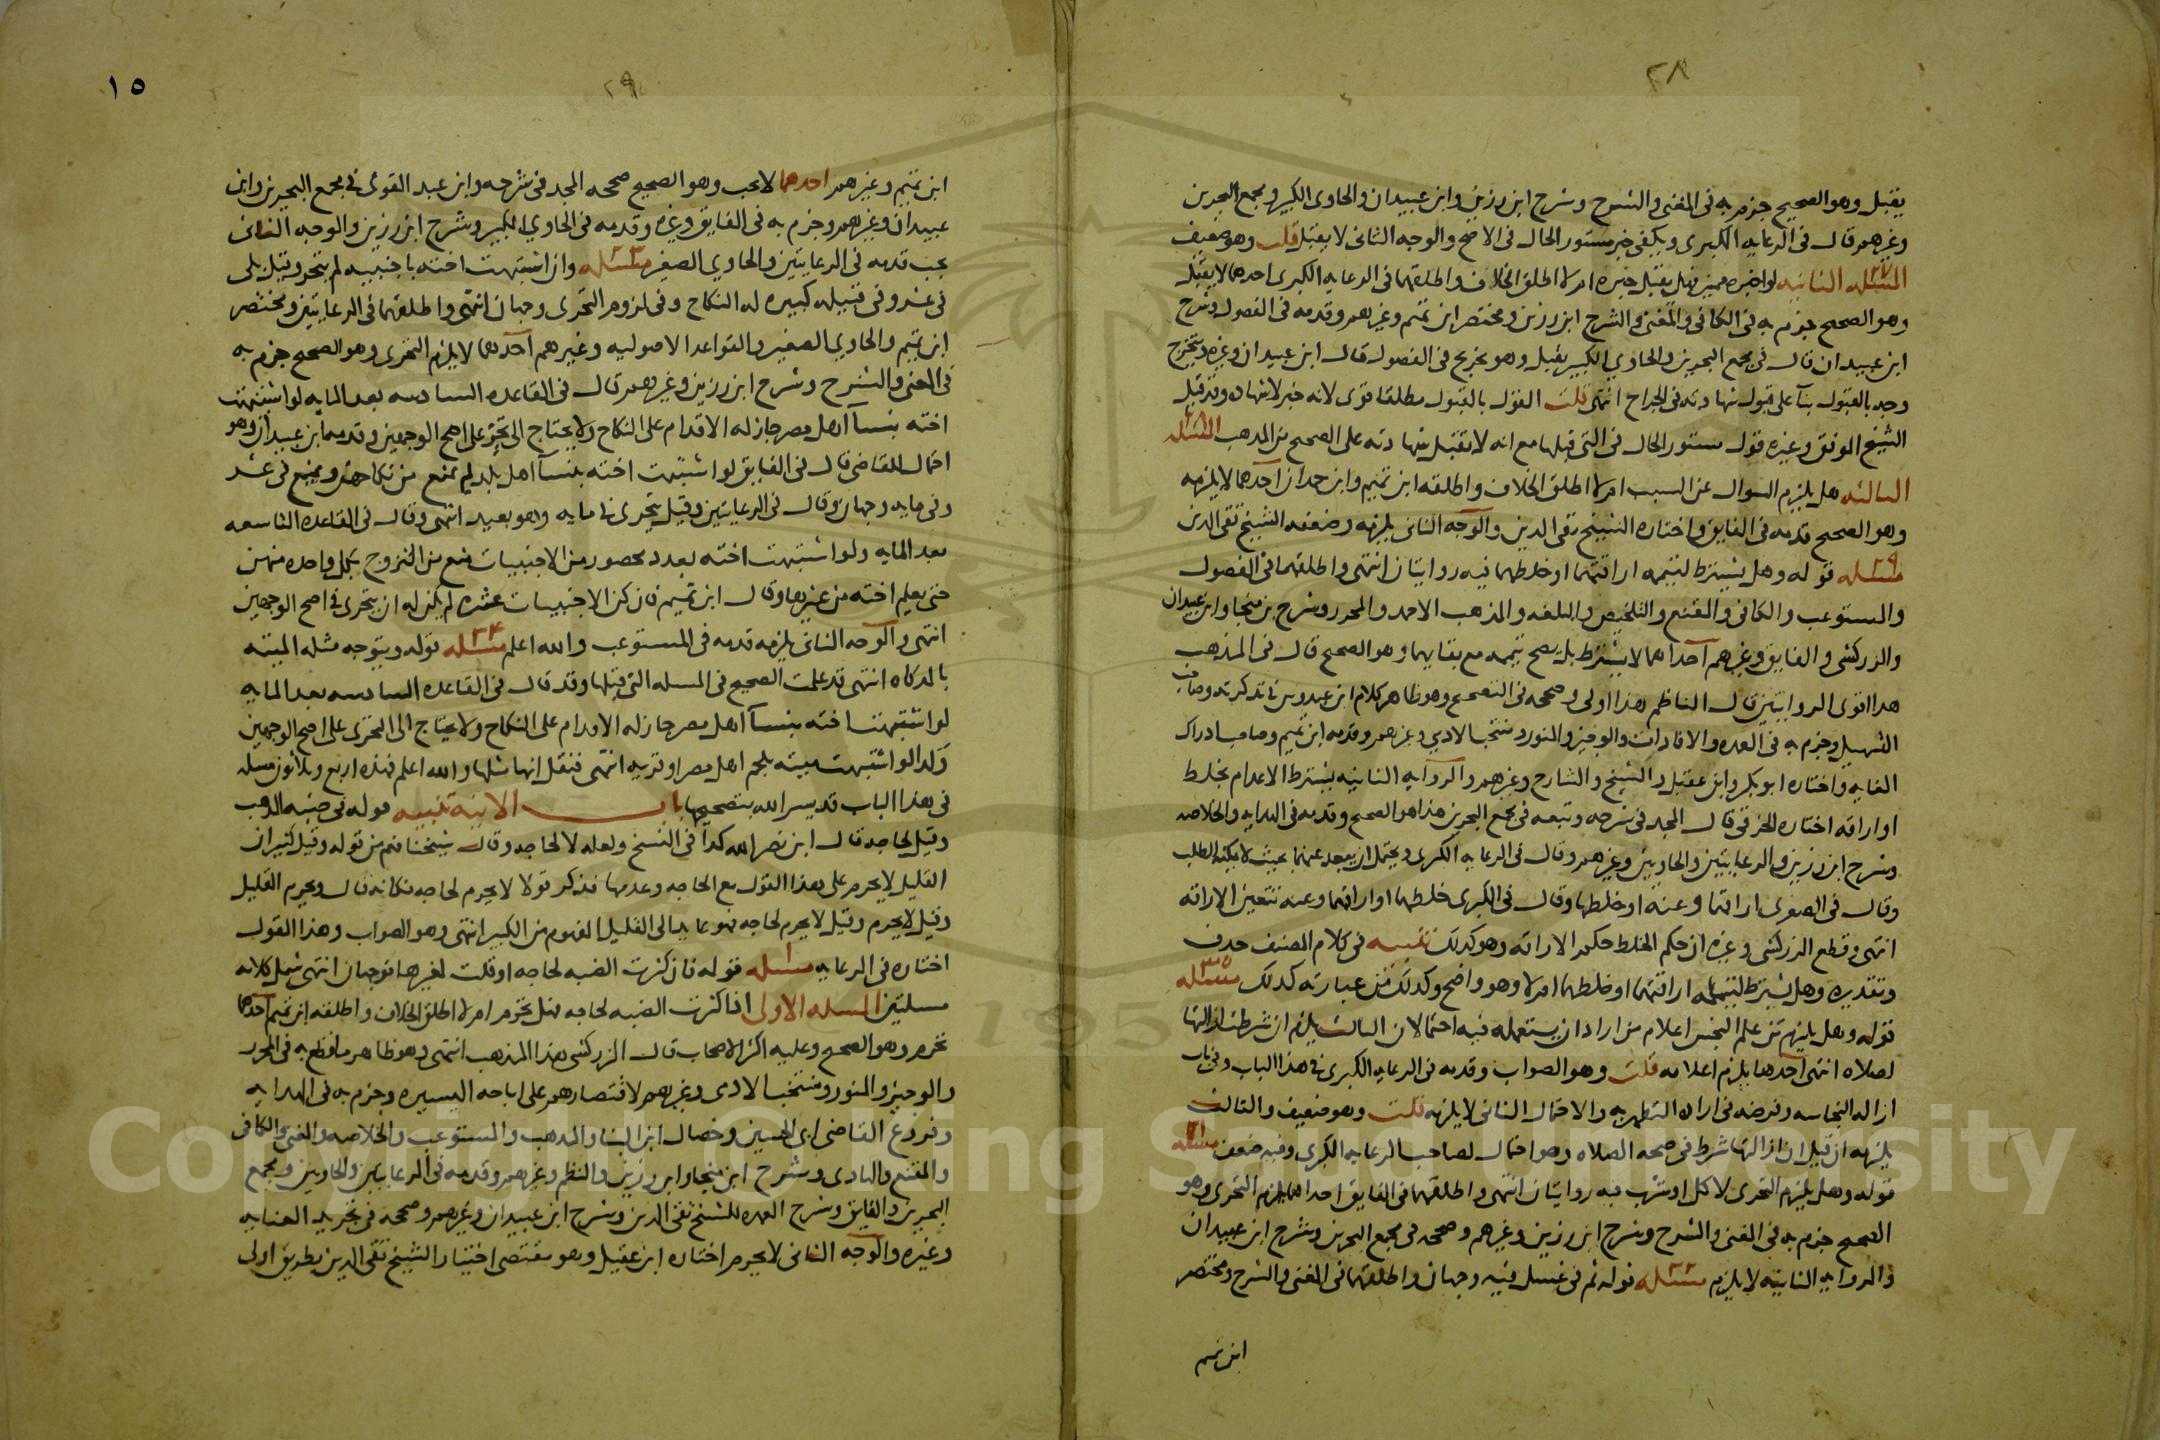 ٢٨
يقبل وهو الصحيح جزم به فى المغنى والشرح وشرح ابن رزين وابن عبيدان والحاوى الكبير ومجمع البحرين
وغيرهم قال فى الرعايه الكبرى ويكفى خبر مستور الحال فى الاصح والوجه الثانى لا يقبل قلت وهو ضعيف
المسئله الثانيه ٢٧ لو اخبره مميز فهل يقبل خبره ام لا اطلق الخلاف واطلقهما فى الرعايه الكبرى احدهما لا يقبل
وهو الصحيح جزم به فى الكافى والمغنى والشرح ابن رزين ومختصر ابن تميم وغيرهم وقدمه فى الفصول وشرح
ابن عبيدان قال فى مجمع البحرين والحاوى الكبير يقبل وهو تخريج فى الفصول قال ابن عبيدان وغيره ويتخرج
وجه بالقبول بنآ على قبول شهادته فى الجراح انتهى قلت القول بالقبول مطلقا قوى لانه خبر لا شهاده وقد قبل
الشيخ الموفق وغيره قول مستور الحال فى التى قبلها مع انه لا تقبل شهادته على الصحيح من المذهب المسئله ٢٨
الثالثه هل يلزم السوال عن السبب ام لا اطلق الخلاف واطلقه ابن تميم وابن حمدان احدهما لا يلزمه
وهو الصحيح قدمه فى الفايق واختاره الشيخ تقى الدين والوجه الثانى يلزمه وضعفه الشيخ تقى الدين
مسئله ٢٩ قوله وهل يشترط لتيممه اراقتهما او خلطهما فيه روايتان انتهى واطلقهما فى الفصول
والمستوعب والكافى والمقنع والتلخيص والبلغه والمذهب الاحمد والمحرر وشرح بن منجا وابن عبيدان
والزركشى والفايق وغيرهم احداهما لا يشترط بل يصح تيممه مع بقايهما وهو الصحيح قال فى المذهب
هذا اقوى الروايتين قال الناظم هذا اولى وصححه فى التصحيح وهو ظاهر كلام ابن عبدوس فى تذكرته وصاحب
التسهيل وجزم به فى العمده والافادات والوجيز والمنور ومنتخب الادمى وغيرهم وقدمه ابن تميم وصاحب ادراك
الغايه واختاره ابو بكر وابن عقيل والشيخ والشارح وغيرهم والروايه الثانيه يشترط الاعدام بخلط
او اراقه اختاره الخرقى قال المجد فى شرحه وتبعه فى مجمع البحرين هذا هو الصحيح وقدمه فى الهدايه والخلاصه
وشرح ابن رزين والرعايتين والحاويين وغيرهم وقال فى الرعايه الكبرى ويحتمل ان يبعد عنهما بحيث لا يمكنه الطلب
وقال فى الصغرى اراقهما وعنه او خلطهما وقال فى الكبرى خلطهما او اراقهما وعنه تتعين الاراقه
انتهى وقطع الزركشى وغيره ان حكم الخلط حكم الاراقه وهو كذلك تنبيه فى كلام المصنف حذف
وتقديره وهل يشترط لتيممه اراقتهما او خلطهما ام لا وهو واضح وكذلك من عبارته كذلك مسئله ٣٠
قوله وهل يلزم من علم النجس اعلام من اراد ان يستعمله فيه احتمالان الثالث يلزم ان شرطت ازالتها
لصلاه انتهى احدها يلزم اعلامه قلت وهو الصواب وقدمه فى الرعايه الكبرى فى هذا الباب وفى باب
ازاله النجاسه وفرضه فى اراده التطهر به والاحتمال الثانى لا يلزمه قلت وهو ضعيف والثالث
يلزمه ان قيل ان ازالتها شرط فى صحه الصلاه وهو احتمال لصاحب الرعايه الكبرى وفيه ضعف مسئله ٣١
قوله وهل يلزم التحرى لاكل او شرب فيه روايتان انتهى واطلقهما فى الفايق احداهما يلزم التحرى وهو
الصحيح جزم به فى المغنى والشرح وشرح ابن رزين وغيرهم وصححه فى مجمع البحرين وشرح ابن عبيدان
والروايه الثانيه لا يلزم مسئله ٣٢ قوله ثم فى غسل فيه وجهان واطلقهما فى المغنى والشرح ومختصر
ابن تميم
١٥
٢٩
ابن تميم وغيرهم احدهما لا يجب وهو الصحيح صححه المجد فى شرحه وابن عبد القوى فى مجمع البحرين وابن
عبيدان وغيرهم وجزم به فى الفايق وغيره وقدمه فى الحاوي الكبير وشرح ابن رزين والوجه الثانى
يجب قدمه فى الرعايتين والحاوي الصغير مسئله ٣٣ وان اشتبهت اخته باجنبيه لم يتحر وقيل بلى
فى عشر وفى قبيله كبيره له النكاح وفى لزوم التحرى وجهان انتهى واطلقهما فى الرعايتين ومختصر
ابن تميم والحاوي الصغير والقواعد الاصوليه وغيرهم احدهما لا يلزم التحرى وهو الصحيح جزم به
فى المغنى والشرح وشرح ابن رزين وغيرهم قال فى القاعده السادسه بعد المايه لو اشتبهت
اخته بنسآ اهل مصر جاز له الاقدام على النكاح ولا يحتاج الى تحر على اصح الوجهين وقدمه ابن عبيدان وهو
احتمال للقاضى قال فى الفايق لو اشتبهت اخته بنسآ اهل بلد لم يمنع من نكاحهن ويمنع فى عشر
وفى مايه وجهان وقال فى الرعايتين وقيل يتحرى فى مايه وهو بعيد انتهى وقال فى القاعده التاسعه
بعد المايه ولو اشتبهت اخته بعدد محصور من الاجنبيات منع من التزوج بكل واحده منهن
حتى يعلم اخته من غيرها وقال ابن تميم فان كن الاجنبيات عشره لم يكن له ان يتحرى فى اصح الوجهين
انتهى والوجه الثانى يلزمه قدمه فى المستوعب والله اعلم مسئله ٣٤ قوله ويتوجه مثله الميته
بالمذكاه انتهى قد علمت الصحيح فى المسله التى قبلها وقد قال فى القاعده السادسه بعد المايه
لو اشتبهت اخته بنسآ اهل مصر جاز له الاقدام على النكاح ولا يحتاج الى التحرى على اصح الوجهين
وكذا لو اشتبهت ميته بلحم اهل مصر او قريه انتهى فنقل انها مثلها والله اعلم فهذه اربع وثلاثون مسله
فى هذا الباب قد يسر الله بتصحيحها باب الانيه تنبيه قوله فى ضبه الذهب
وقيل لحاجه قال ابن نصر الله كذا فى النسخ ولعله لا لحاجه وقال شيخنا فهم من قوله وقيل كثير ان
القليل لا يحرم على هذا القول مع الحاجه وعدمها فذكر قولا لا يحرم لحاجه فكانه قال ويحرم القليل
وقيل لا يحرم وقيل لا يحرم لحاجه فهو عايد الى القليل المفهوم من الكبير انتهى وهو الصواب وهذا القول
اختاره فى الرعايه مسئله ١ قوله فان كثرت الضبه لحاجه او قلت لغيرها فوجهان انتهى شمل كلامه
مسلتين المسله الاولى اذا كثرت الضبه لحاجه فهل تحرم ام لا اطلق الخلاف واطلقه ابن تميم احدهما
تحرم وهو الصحيح وعليه اكثر الاصحاب قال الزركشى هذا المذهب انتهى وهو ظاهر ما قطع به فى المحرر
والوجيز والمنور ومنتخب الادمى وغيرهم لاقتصارهم على اباحه اليسيره وجزم به فى الهدايه
وفروع القاضى ابى الحسين وخصال ابن البنا والمذهب والمستوعب والخلاصه والمغنى والكافى
والمقنع والهادى وشرح ابن منجا وابن رزين والنظم وغيرهم وقدمه فى الرعايتين والحاويين ومجمع
البحرين والفايق وشرح العمده للشيخ تقى الدين وشرح ابن عبيدان وغيرهم وصححه فى تجريد العنايه
وغيره والوجه الثانى لا يحرم اختاره ابن عقيل وهو مقتضى اختيار الشيخ تقى الدين بطريق اولى
Copyright © King Saud University